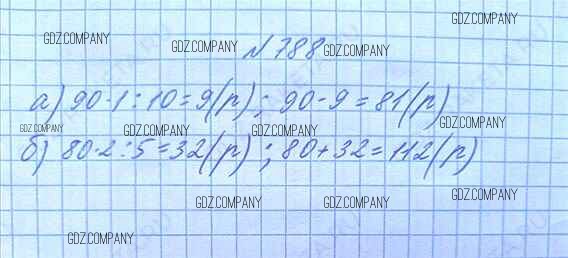 GDZ.COMPANY GDZ.COMPANY № 788 GDZ.COMPANY GDZ.COMPANY
а) 90·1:10=9(р); 90-9=81(р)
GDZ.COMPANY GDZ.COMPANY GDZ.COMPANY GDZ.COMPANY
б) 80·2:5=32(р); 80+32=112(р)
GDZ.COMPANY GDZ.COMPANY GDZ.COMPANY
GDZ.COMPANY